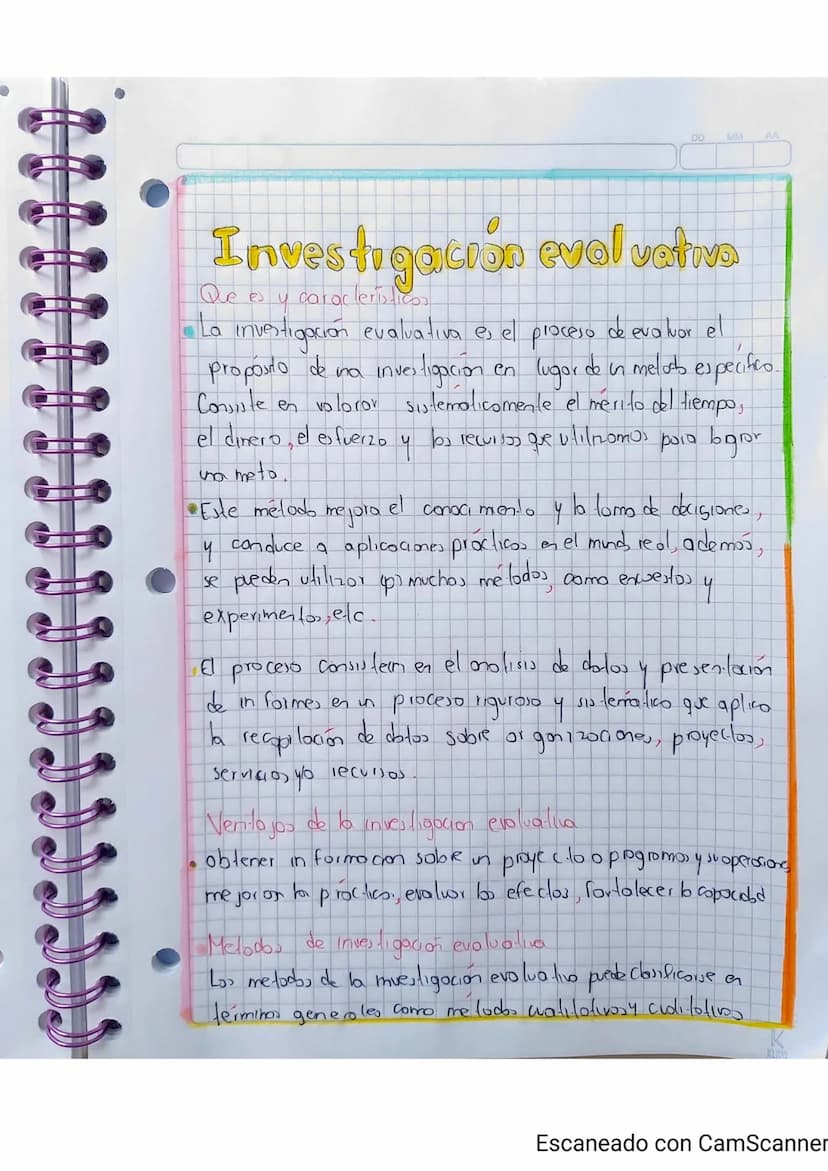 DD MM AA
Investigación evaluativa
Que es y caracteristicas
La investigación evaluativa es el proceso de evaluar el
propósito de una investigación en lugar de un metodo específico.
Consiste en valorar sistemáticamente el mérito del tiempo,
el dinero, el esfuerzo y los recursos que utilizamos para lograr
una meta.
Este método mejora el conocimento y la toma de decisiones,
y conduce a aplicaciones prácticas en el mundo real, además,
se pueden utilizar (p) muchos métodos, como encuestas y
experimentos, etc.
El proceso consiste en el analisis de datos y presentación
de informes en un proceso riguroso y sistemático que aplica
la recopilación de datos sobre organizaciones, proyectos,
servicios y/o recursos.
Ventajas de la investigacion evaluativa
obtener informacion sobre un proyecto o programas y su operaciones
mejoran la práctica, evaluar los efectos, fortalecer la capacidad
Metodos de investigación evaluativa
Los metodos de la investigación evaluativa puede clasificarse en
términos generales como métodos y
K
Escaneado con CamScanner